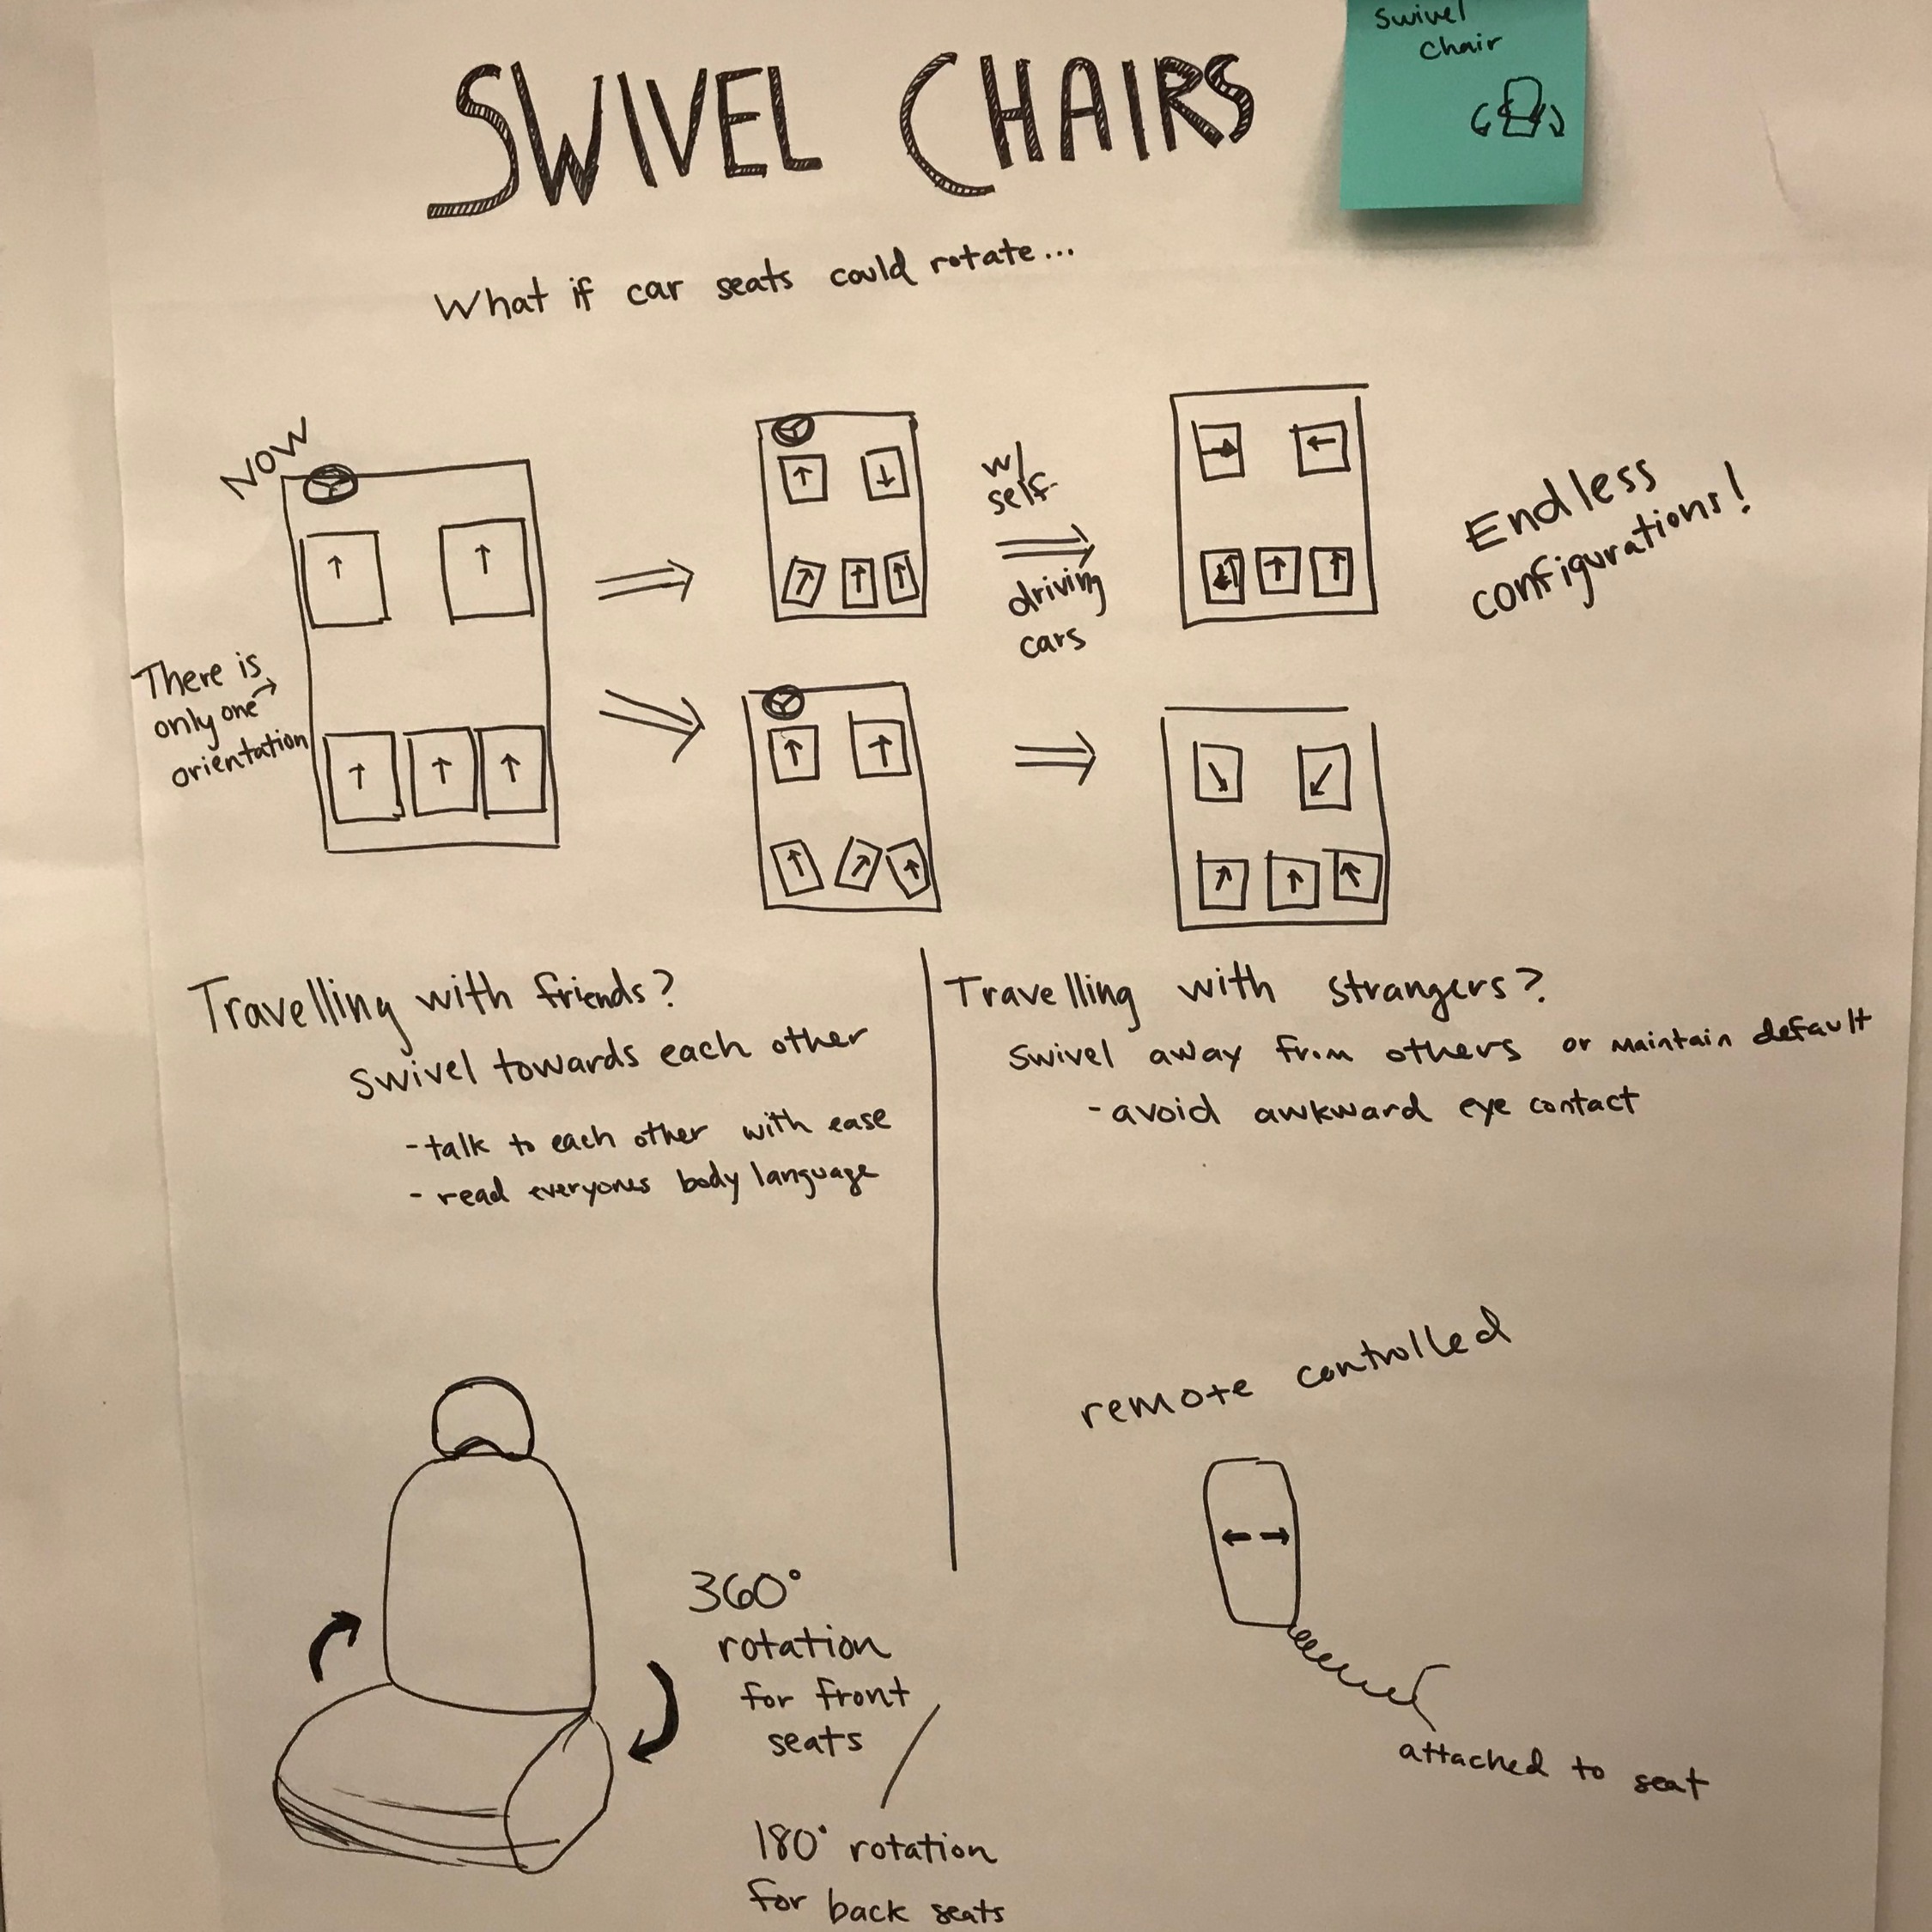 SWIVEL CHAIRS
Swivel
Chair
What if car seats could rotate...
NOW
There is
only one
orientation
w/
self-
driving
cars
Endless
configurations!
Travelling with friends?
swivel towards each other
- talk to each other with ease
- read everyones body language
Travelling with strangers?
swivel away from others or maintain default
- avoid awkward eye contact
360°
rotation
for front
seats
180° rotation
for back seats
remote controlled
attached to seat